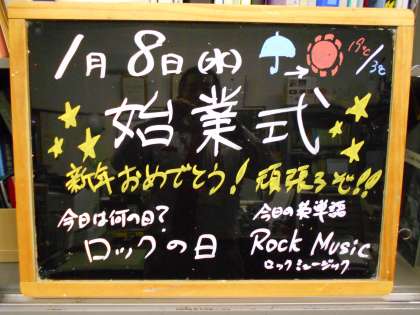 1月8日(水) → 19℃/3℃
始業式
新年おめでとう! 頑張ろぞ!!
今日は何の日? 今日の英単語
ロックの日 Rock Music
ロックミュージック